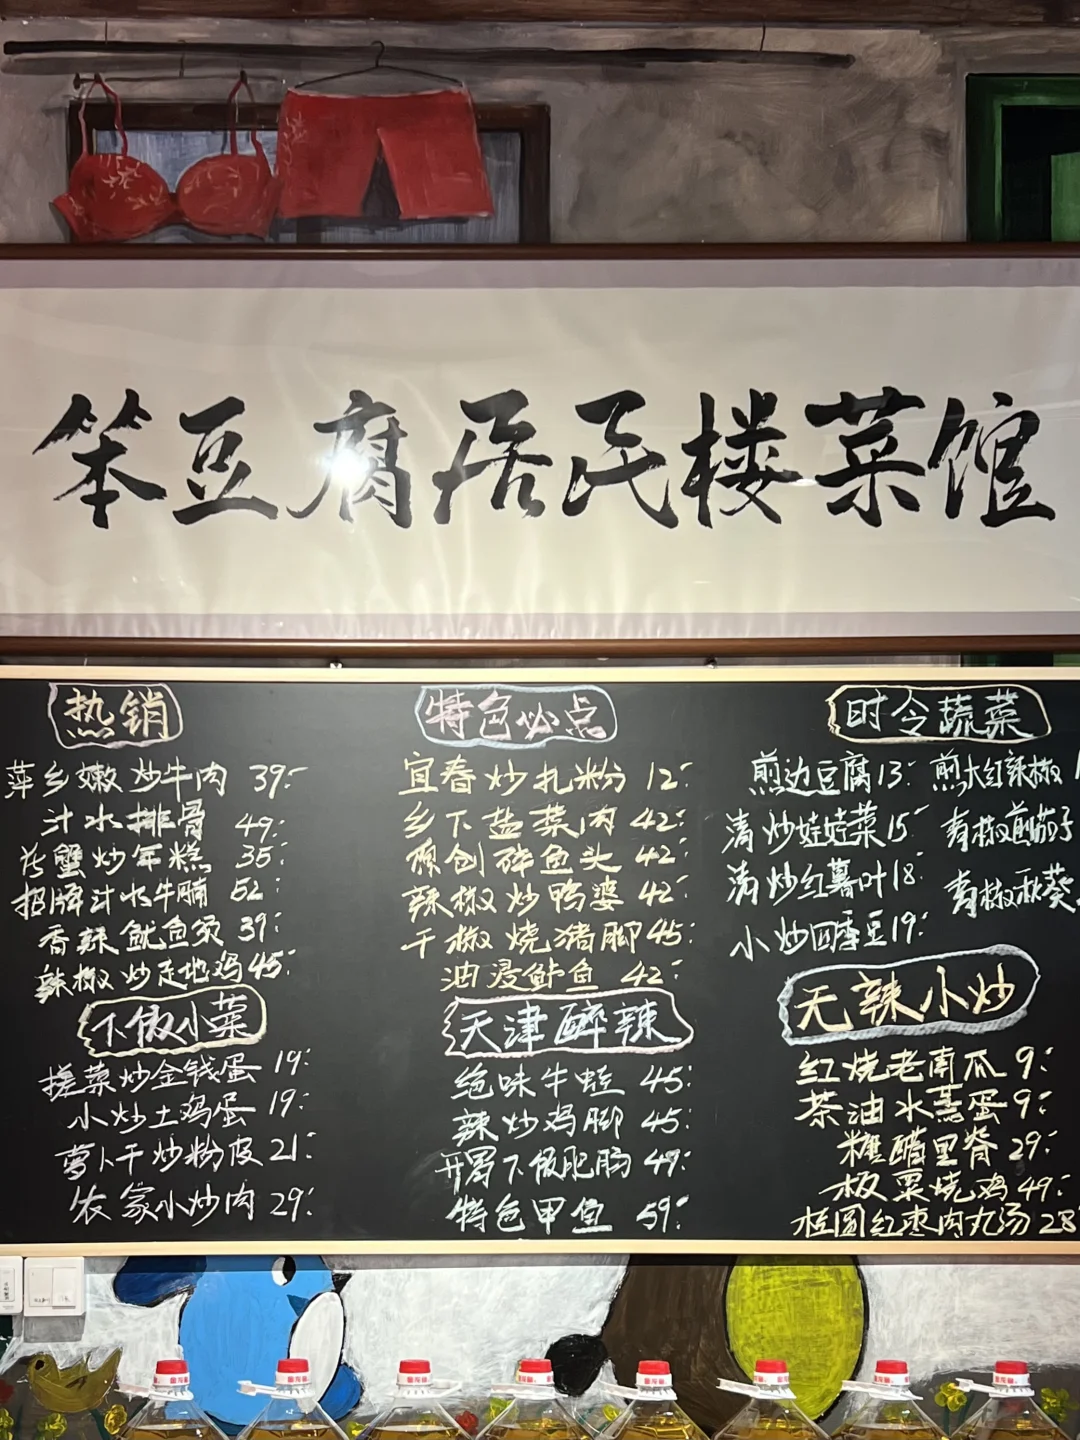 笨豆腐居民楼菜馆
热销
萍乡嫩炒牛肉 39
汁水排骨 49
蟹炒年糕 35
招牌汁水牛腩 52
香辣鱿鱼须 39
辣椒炒走地鸡 45
下饭小菜
搓菜炒金钱蛋 19
小炒土鸡蛋 19
萝卜干炒粉皮 21
农家小炒肉 29
特色必点
宜春炒扎粉 12
乡下盐菜肉 42
原创碎鱼头 42
辣椒炒鸭婆 42
干椒烧猪脚 45
油浸鲈鱼 42
天津醉辣
绝味牛蛙 45
辣炒鸡脚 45
开胃下饭肥肠 49
特色甲鱼 59
时令蔬菜
煎边豆腐 13 煎大红辣椒
清炒娃娃菜 15 青椒煎茄子
清炒红薯叶 18 青椒秋葵
小炒四季豆 19
无辣小炒
红烧老南瓜 9
茶油水蒸蛋 9
糖醋里脊 29
板栗烧鸡 49
桂圆红枣肉丸汤 28